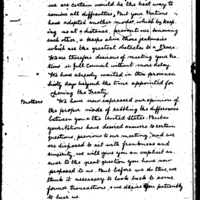 we are certain would be the best way to
remove all difficulties, but your Nations
have adopted another mode, which by keep-
ing us at a distance, prevents our knowing
each other, & keeps alive those jealousies
which are the greatest obstacles to a Peace.
We are therefore desirous of meeting your Na-
tions in full Council without more delay.
We have already waited in this province
sixty days beyond the time appointed for
opening the Treaty.
Brothers
We have now expressed our opinion of
the proper mode of settling the differences
between you & the United States. But as
your Nations have desired answers to certain
questions, previous to our meeting, and we
are disposed to act with frankness and
sincerity, we will give you an explicit an-
swer to the great question you have now
proposed to us. But before we do this, we
think it necessary to look back to some
former transactions, & we desire you patiently
to hear us.